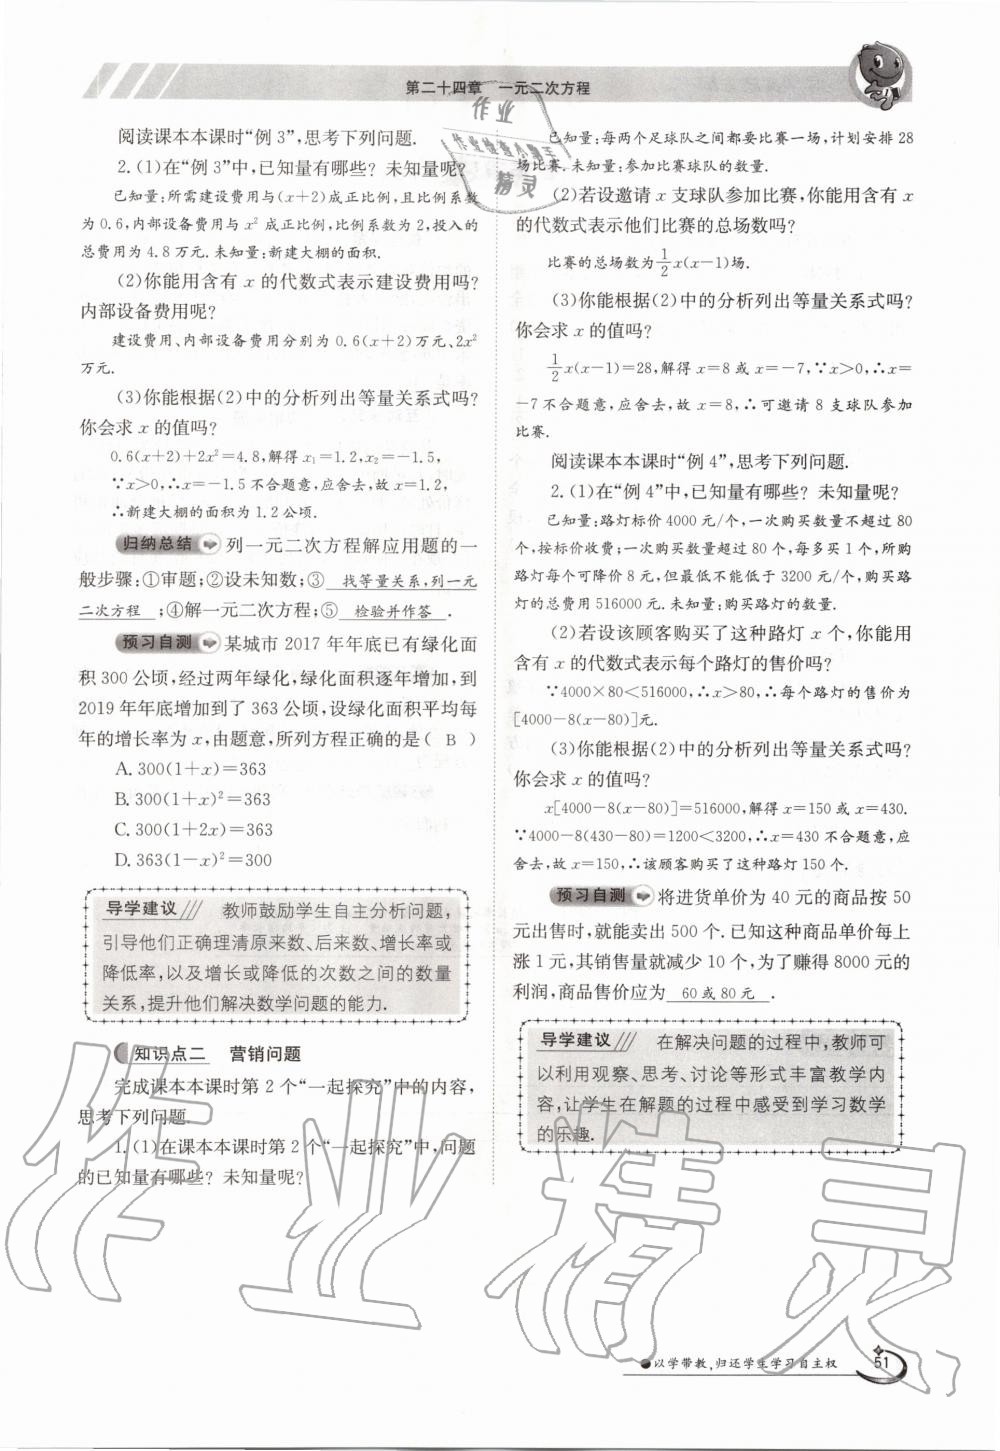 第二十四章 一元二次方程
阅读课本本课时“例3”,思考下列问题.
2.(1)在“例3”中,已知量有哪些? 未知量呢?
已知量:所需建设费用与(x+2)成正比例,且比例系数
为0.6,内部设备费用与x²成正比例,比例系数为2,投入的
总费用为4.8万元.未知量:新建大棚的面积.
(2)你能用含有x的代数式表示建设费用吗?
内部设备费用呢?
建设费用、内部设备费用分别为0.6(x+2)万元、2x²
万元.
(3)你能根据(2)中的分析列出等量关系式吗?
你会求x的值吗?
0.6(x+2)+2x²=4.8,解得x₁=1.2,x₂=-1.5,
∵x>0,∴x=-1.5不合题意,应舍去,故x=1.2,
∴新建大棚的面积为1.2公顷.
归纳总结 列一元二次方程解应用题的一
般步骤:①审题;②设未知数;③ 找等量关系,列一元
二次方程 ;④解一元二次方程;⑤ 检验并作答 .
预习自测 某城市2017年年底已有绿化面
积300公顷,经过两年绿化,绿化面积逐年增加,到
2019年年底增加到了363公顷,设绿化面积平均每
年的增长率为x,由题意,所列方程正确的是( B )
A.300(1+x)=363
B.300(1+x)²=363
C.300(1+2x)=363
D.363(1-x)²=300
导学建议 教师鼓励学生自主分析问题,
引导他们正确理清原来数、后来数、增长率或
降低率,以及增长或降低的次数之间的数量
关系,提升他们解决数学问题的能力.
知识点二 营销问题
完成课本本课时第2个“一起探究”中的内容,
思考下列问题.
1.(1)在课本本课时第2个“一起探究”中,问题
的已知量有哪些? 未知量呢?
已知量:每两个足球队之间都要比赛一场,计划安排28
场比赛.未知量:参加比赛球队的数量.
(2)若设邀请x支球队参加比赛,你能用含有x
的代数式表示他们比赛的总场数吗?
比赛的总场数为1/2x(x-1)场.
(3)你能根据(2)中的分析列出等量关系式吗?
你会求x的值吗?
1/2x(x-1)=28,解得x=8或x=-7,∵x>0,∴x=
-7不合题意,应舍去,故x=8,∴可邀请8支球队参加
比赛.
阅读课本本课时“例4”,思考下列问题.
2.(1)在“例4”中,已知量有哪些? 未知量呢?
已知量:路灯标价4000元/个,一次购买数量不超过80
个,按标价收费;一次购买数量超过80个,每多买1个,所购
路灯每个可降价8元,但最低不能低于3200元/个,购买路
灯的总费用516000元.未知量:购买路灯的数量.
(2)若设该顾客购买了这种路灯x个,你能用
含有x的代数式表示每个路灯的售价吗?
∵4000×80<516000,∴x>80,∴每个路灯的售价为
[4000-8(x-80)]元.
(3)你能根据(2)中的分析列出等量关系式吗?
你会求x的值吗?
x[4000-8(x-80)]=516000,解得x=150或x=430.
∵4000-8(430-80)=1200<3200,∴x=430不合题意,应
舍去,故x=150,∴该顾客购买了这种路灯150个.
预习自测 将进货单价为40元的商品按50
元出售时,就能卖出500个.已知这种商品单价每上
涨1元,其销售量就减少10个,为了赚得8000元的
利润,商品售价应为 60或80元 .
导学建议 在解决问题的过程中,教师可
以利用观察、思考、讨论等形式丰富教学内
容,让学生在解题的过程中感受到学习数学
的乐趣.
作业精灵
以学带教,归还学生学习自主权
51